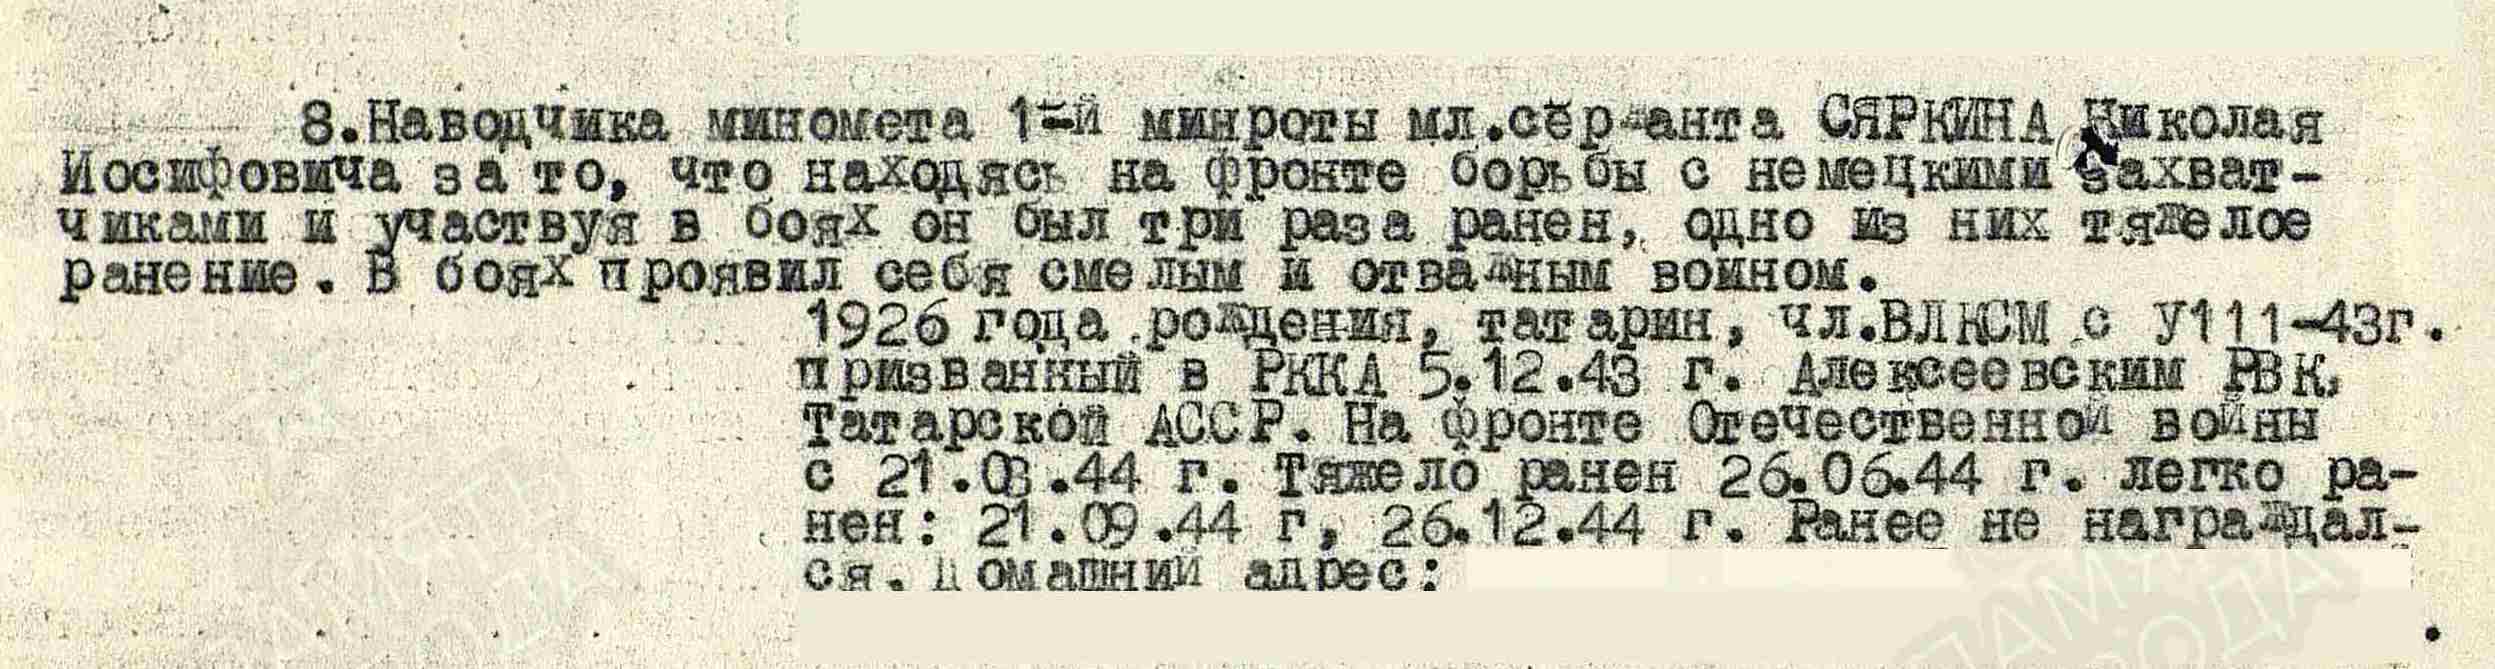 8.Наводчика миномета 1-й минроты мл.сержанта СЯРКИНА Николая
Иосифовича за то, что находясь на фронте борьбы с немецкими захват-
чиками и участвуя в боях он был три раза ранен, одно из них тяжелое
ранение. В боях проявил себя смелым и отважным воином.
1926 года рождения, татарин, чл.ВЛКСМ с У111-43г.
призванный в РККА 5.12.43 г. Алексеевским РВК,
Татарской АССР. На фронте Отечественной войны
с 21.03.44 г. Тяжело ранен 26.06.44 г. легко ра-
нен: 21.09.44 г, 26.12.44 г. Ранее не награждал-
ся. Домашний адрес: